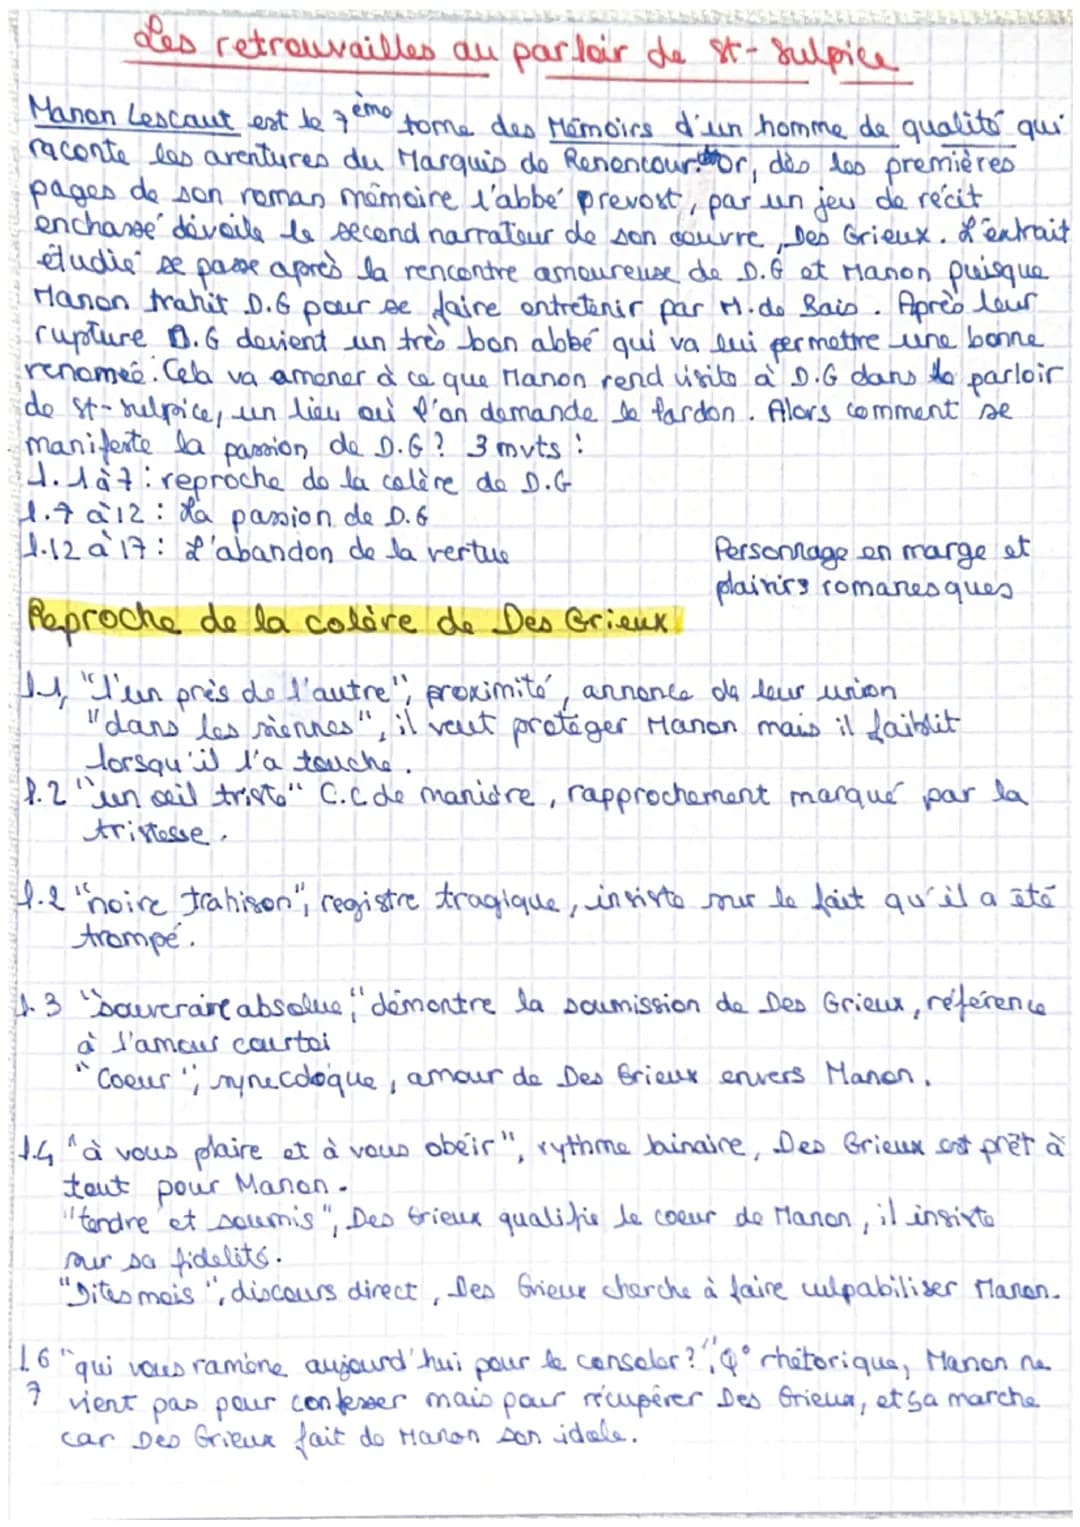 Les retrouvailles au parloir de St-Sulpice
Manon Lescaut est le 7ème tome des Mémoirs d'un homme de qualité qui
raconte les aventures du Marquis de Renoncour. Or, dès les premières
pages de son roman mémoire l'abbé prevost, par un jeu de récit
enchassé dévoile le second narrateur de son oeuvre, Des Grieux. L'extrait
étudié se passe après la rencontre amoureuse de D.G et Manon puisque
Manon trahit D.G pour se faire entretenir par M. de Bais. Après leur
rupture D.G devient un très bon abbé qui va lui permettre une bonne
renomeé. Cela va amener à ce que Manon rend visite à D.G dans le parloir
de St-sulpice, un lieu où l'on demande le pardon. Alors comment se
manifeste la passion de D.G? 3 mvts :
l.1à7 : reproche de la colère de D.G
l.7 à12 : La passion de D.G
l.12 à 17 : L'abandon de la vertue
Personnage en marge et
plairirs romanesques
Reproche de la colère de Des Grieux
l.1, "l'un près de l'autre", proximité, annonce de leur union
"dans les siennes", il veut protéger Manon mais il faiblit
lorsqu'il l'a touche.
l.2 "un œil triste" C.C de manière, rapprochement marqué par la
tristesse.
l.2 "noire trahison", registre tragique, insiste sur le fait qu'il a été
trompé.
l.3 "souveraine absolue," démontre la soumission de Des Grieux, référence
à l'amour courtoi
"Coeur", synecdoque, amour de Des Grieux envers Manon.
l.4 "à vous plaire et à vous obéir", rythme binaire, Des Grieux est prêt à
tout pour Manon.
"tendre et soumis", Des Grieux qualifie le coeur de Manon, il insiste
sur sa fidelité.
"Dites mois", discours direct, Des Grieux cherche à faire culpabiliser Manon.
l.6 "qui vous ramène aujourd'hui pour le consoler?", Q° rhétorique, Manon ne
7 vient pas pour confesser mais pour récupérer Des Grieux, et sa marche
car Des Grieux fait de Manon son idole.